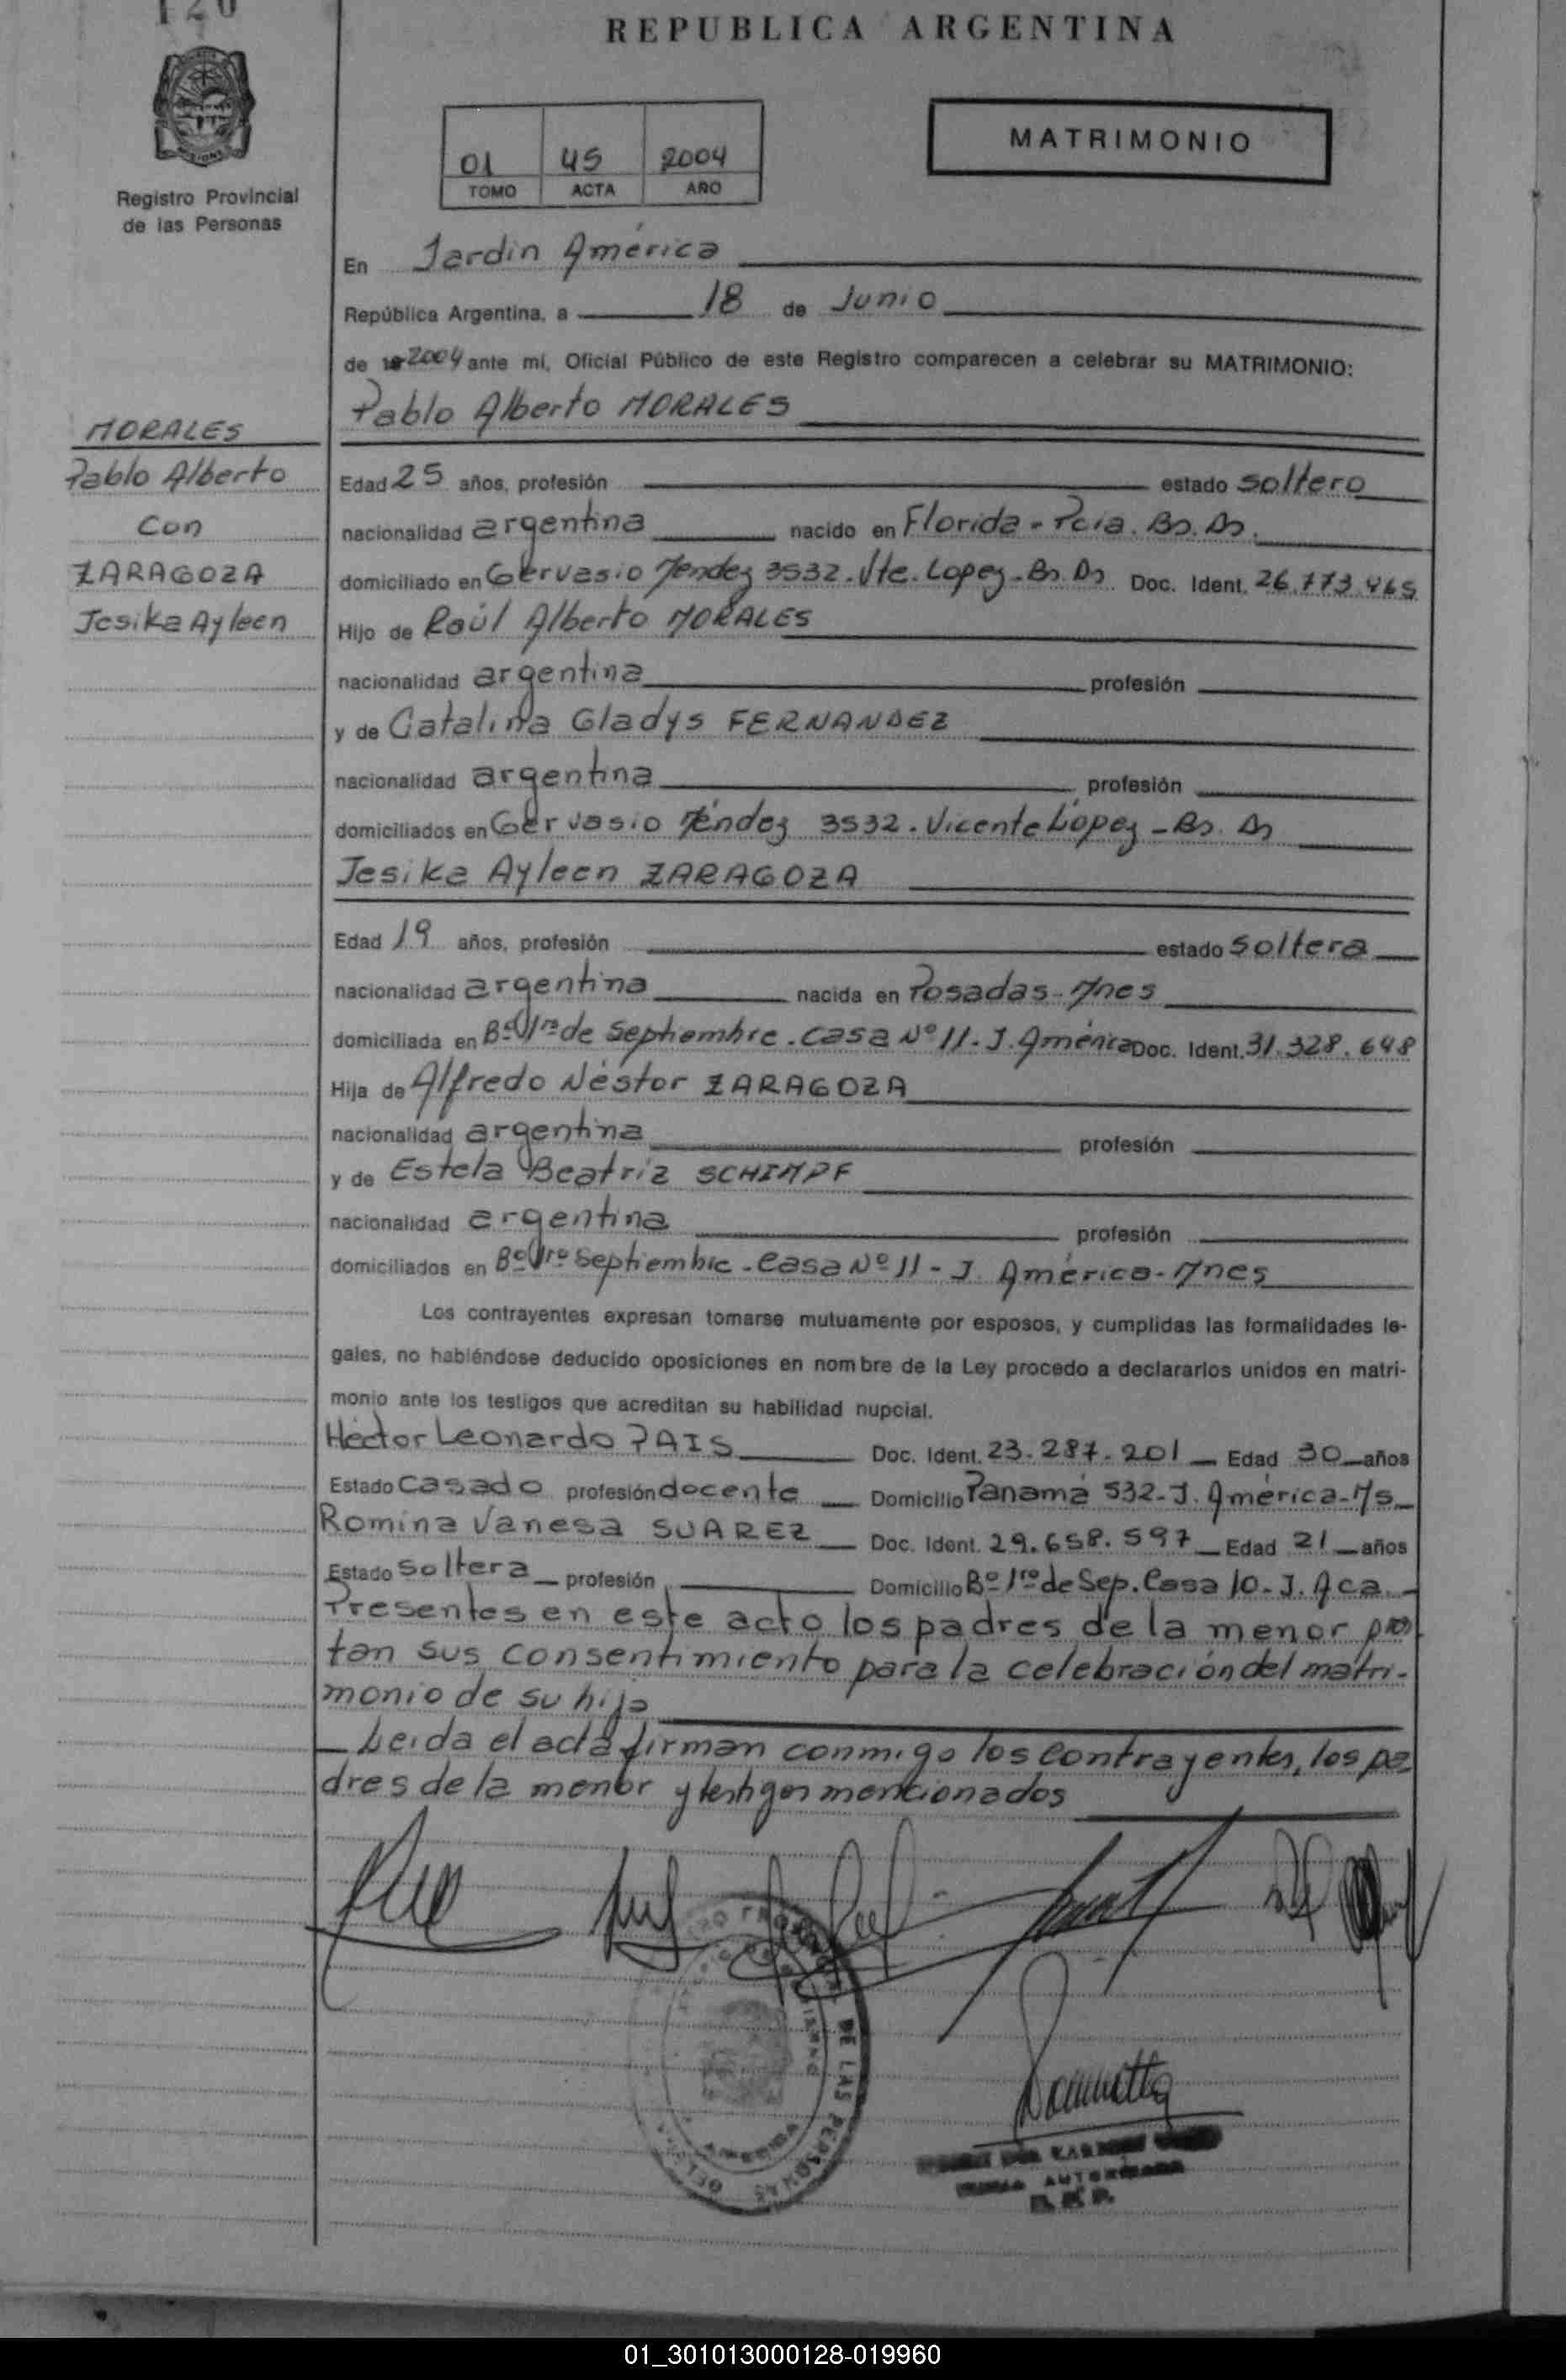 120
REPUBLICA ARGENTINA
MATRIMONIO
01 45 2004
TOMO ACTA AÑO
Registro Provincial
de las Personas
En Jardin América
República Argentina, a 18 de Junio
de 2004 ante mi, Oficial Público de este Registro comparecen a celebrar su MATRIMONIO:
Pablo Alberto MORALES
MORALES
Pablo Alberto
Con
ZARAGOZA
Jesika Ayleen
Edad 25 años, profesión estado soltero
nacionalidad argentina nacido en Florida - Pcia. Bs. As.
domiciliado en Gervasio Méndez 3532. Vte. Lopez - Bs. As Doc. Ident. 26.773.465
Hijo de Raúl Alberto MORALES
nacionalidad argentina profesión
y de Catalina Gladys FERNANDEZ
nacionalidad argentina profesión
domiciliados en Gervasio Méndez 3532. Vicente López - Bs. As
Jesika Ayleen ZARAGOZA
Edad 19 años, profesión estado soltera
nacionalidad argentina nacida en Posadas - Mnes
domiciliada en Bº 1ro de Septiembre. Casa Nº 11 - J. América Doc. Ident. 31.328.648
Hija de Alfredo Néstor ZARAGOZA
nacionalidad argentina profesión
y de Estela Beatriz SCHIMPF
nacionalidad argentina profesión
domiciliados en Bº 1ro Septiembre - Casa Nº 11 - J. América - Mnes
Los contrayentes expresan tomarse mutuamente por esposos, y cumplidas las formalidades le-
gales, no habiéndose deducido oposiciones en nombre de la Ley procedo a declararlos unidos en matri-
monio ante los testigos que acreditan su habilidad nupcial.
Héctor Leonardo PAIS Doc. Ident. 23.287.201 Edad 30 años
Estado casado profesión docente Domicilio Panamá 532 - J. América - Ms
Romina Vanesa SUAREZ Doc. Ident. 29.658.597 Edad 21 años
Estado soltera profesión Domicilio Bº 1ro de Sep. Casa 10 - J. Aca.
Presentes en este acto los padres de la menor pres
tan sus consentimiento para la celebración del matri-
monio de su hija
Leida el acta firman conmigo los contrayentes, los pa
dres de la menor y testigos mencionados
DE LAS PERSONAS
01_301013000128-019960